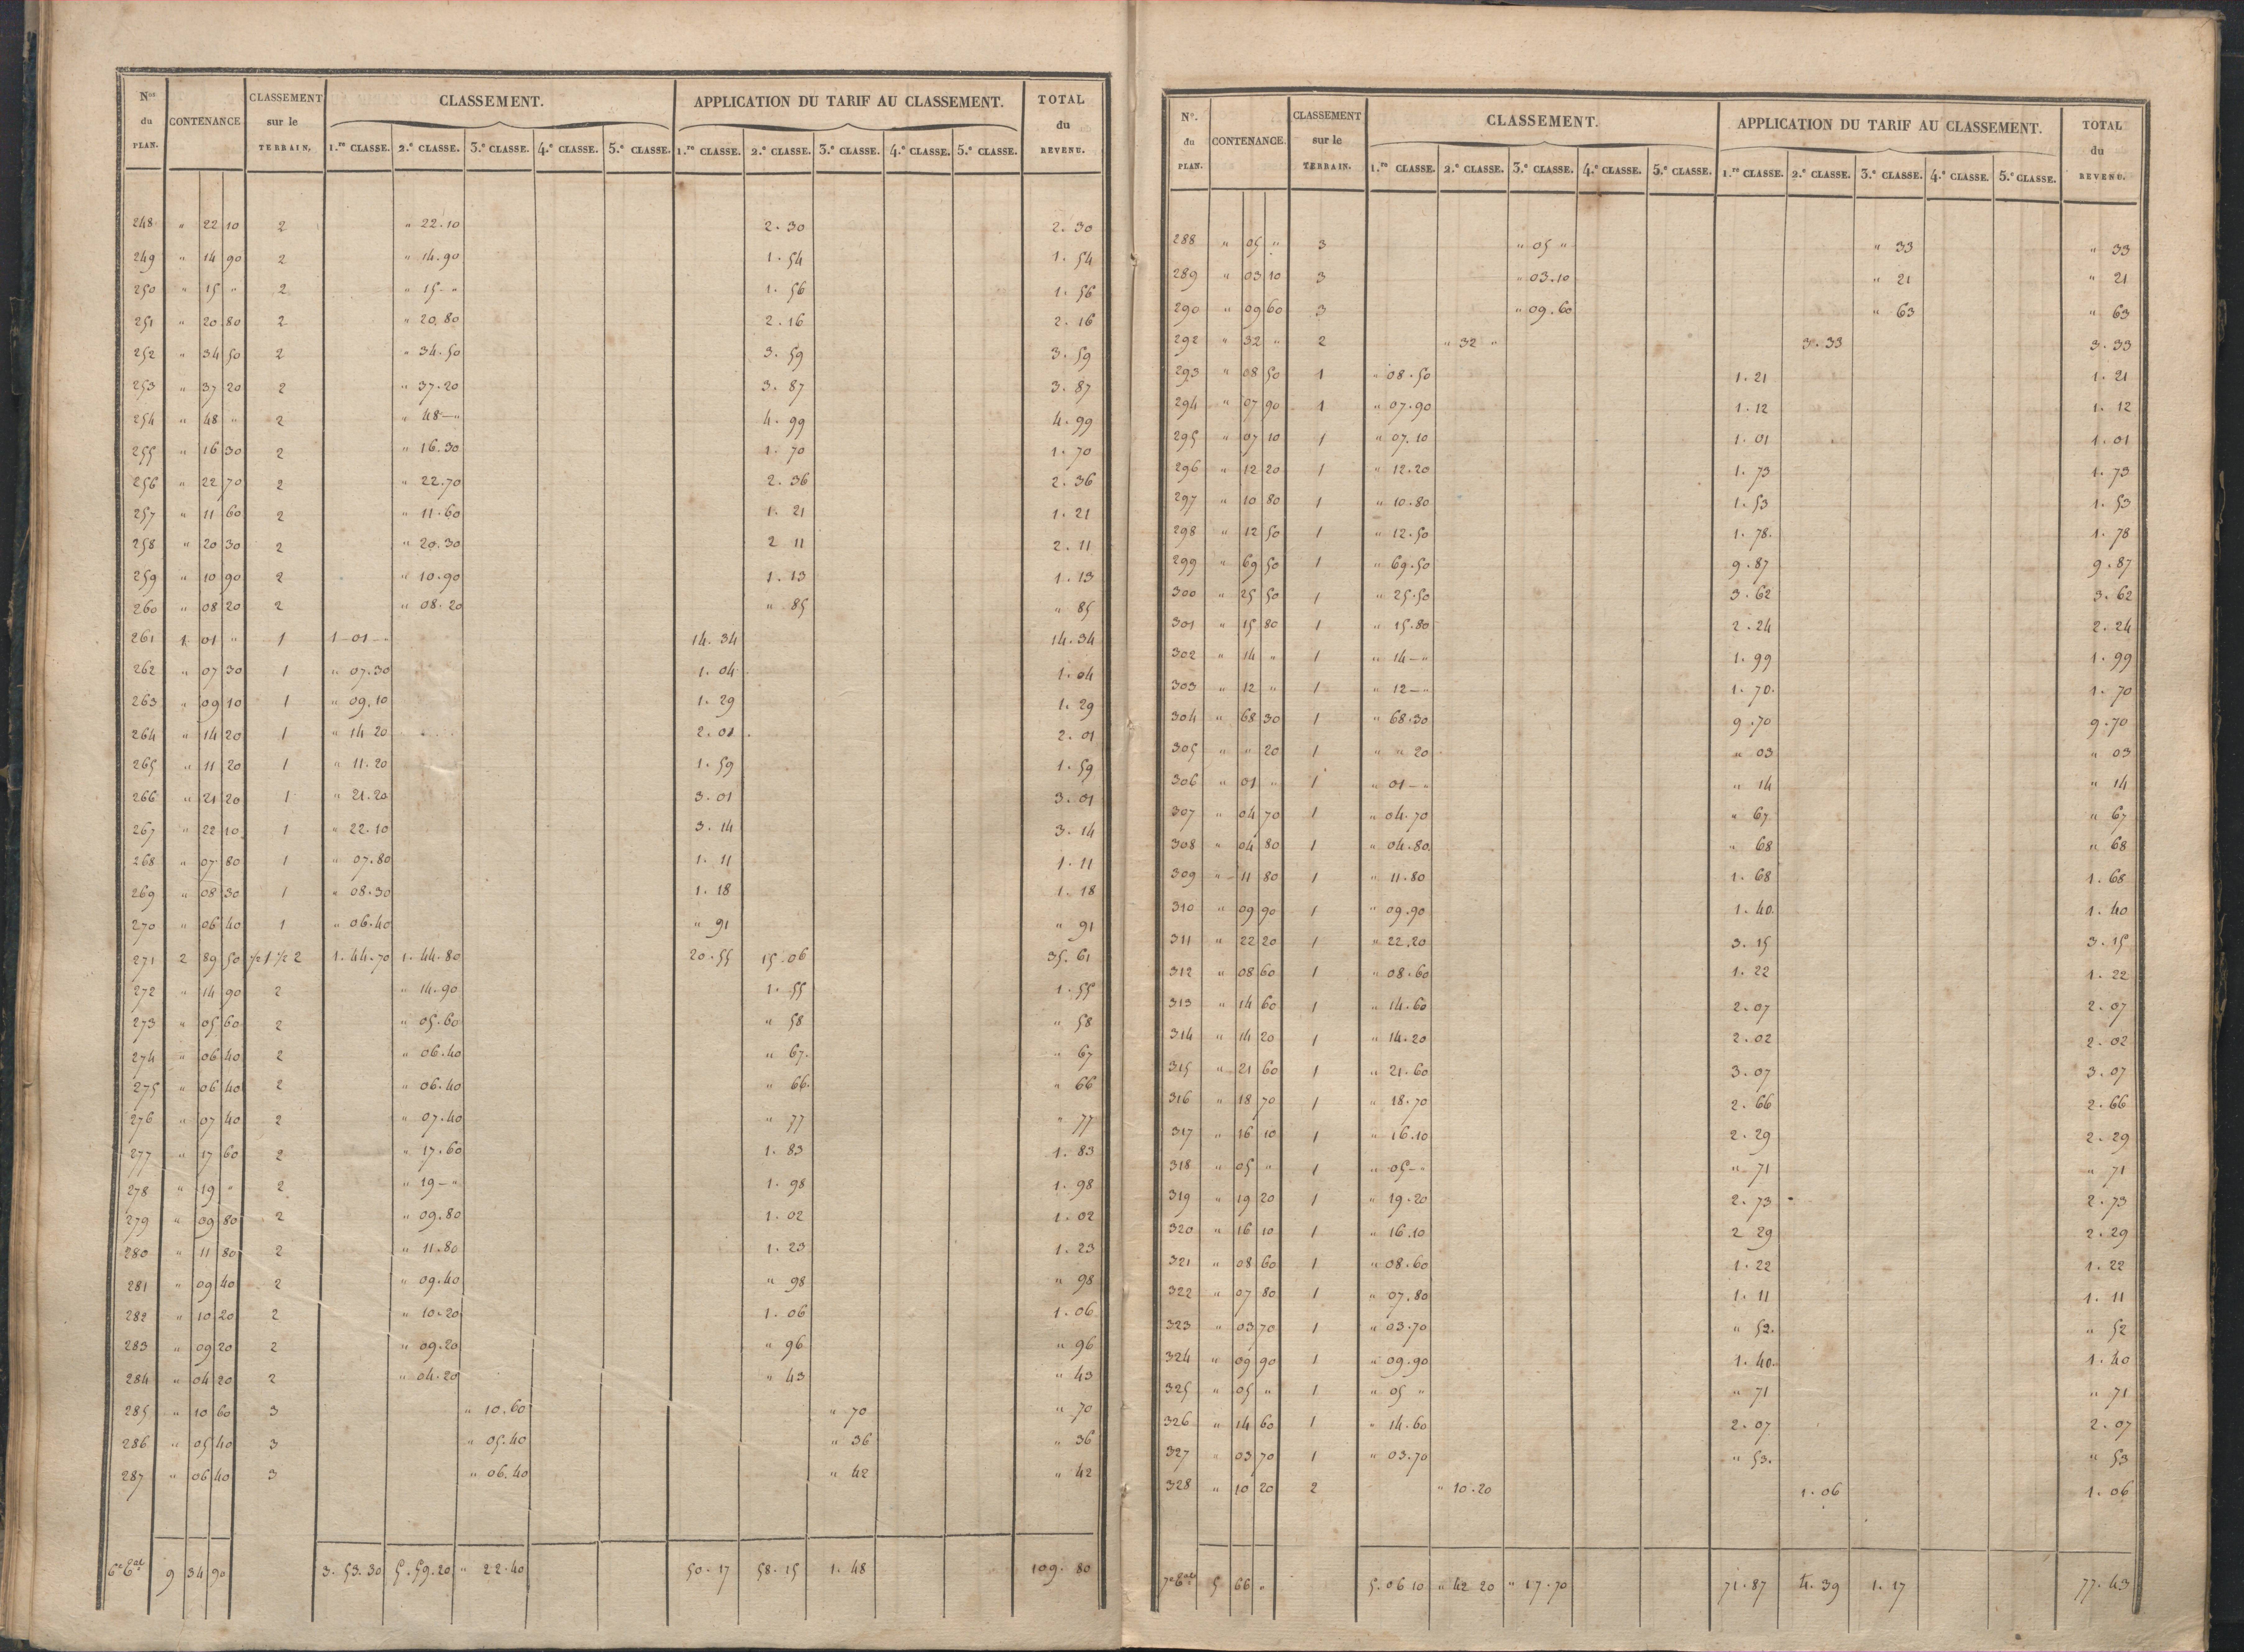 Nos du PLAN. CONTENANCE CLASSEMENT sur le TERRAIN. CLASSEMENT. APPLICATION DU TARIF AU CLASSEMENT. TOTAL du REVENU.
1.re CLASSE. 2.e CLASSE. 3.e CLASSE. 4.e CLASSE. 5.e CLASSE. 1.re CLASSE. 2.e CLASSE. 3.e CLASSE. 4.e CLASSE. 5.e CLASSE.
248 " 22 10 2 " 22.10 2. 30 2. 30
249 " 14 90 2 " 14.90 1. 54 1. 54
250 " 15 " 2 " 15 - " 1. 56 1. 56
251 " 20 80 2 " 20.80 2. 16 2. 16
252 " 34 50 2 " 34.50 3. 59 3. 59
253 " 37 20 2 " 37.20 3. 87 3. 87
254 " 48 " 2 " 48 - " 4. 99 4. 99
255 " 16 30 2 " 16.30 1. 70 1. 70
256 " 22 70 2 " 22.70 2. 36 2. 36
257 " 11 60 2 " 11.60 1. 21 1. 21
258 " 20 30 2 " 20.30 2 11 2. 11
259 " 10 90 2 " 10.90 1. 13 1. 13
260 " 08 20 2 " 08.20 " 85 " 85
261 1 01 " 1 1 - 01 - " 14. 34 14. 34
262 " 07 30 1 " 07.30 1. 04 1. 04
263 " 09 10 1 " 09.10 1. 29 1. 29
264 " 14 20 1 " 14 20 2. 01 2. 01
265 " 11 20 1 " 11.20 1. 59 1. 59
266 " 21 20 1 " 21.20 3. 01 3. 01
267 " 22 10 1 " 22.10 3. 14 3. 14
268 " 07 80 1 " 07.80 1. 11 1. 11
269 " 08 30 1 " 08.30 1. 18 1. 18
270 " 06 40 1 " 06.40 " 91 " 91
271 2 89 50 1/2 1 1/2 2 1. 44.70 1. 44.80 20. 55 15. 06 35. 61
272 " 14 90 2 " 14.90 1. 55 1. 55
273 " 05 60 2 " 05.60 " 58 " 58
274 " 06 40 2 " 06.40 " 67. " 67
275 " 06 40 2 " 06.40 " 66. " 66
276 " 07 40 2 " 07.40 " 77 " 77
277 " 17 60 2 " 17.60 1. 83 1. 83
278 " 19 " 2 " 19 - " 1. 98 1. 98
279 " 09 80 2 " 09.80 1. 02 1. 02
280 " 11 80 2 " 11.80 1. 23 1. 23
281 " 09 40 2 " 09.40 " 98 " 98
282 " 10 20 2 " 10.20 1. 06 1. 06
283 " 09 20 2 " 09.20 " 96 " 96
284 " 04 20 2 " 04.20 " 43 " 43
285 " 10 60 3 " 10.60 " 70 " 70
286 " 05 40 3 " 05.40 " 36 " 36
287 " 06 40 3 " 06.40 " 42 " 42
9 34 90 3. 53.30 5. 59.20 " 22.40 50. 17 58. 15 1. 48 109. 80
No. du PLAN. CONTENANCE. CLASSEMENT sur le TERRAIN. CLASSEMENT. APPLICATION DU TARIF AU CLASSEMENT. TOTAL du REVENU.
1.re CLASSE. 2.e CLASSE. 3.e CLASSE. 4.e CLASSE. 5.e CLASSE. 1.re CLASSE. 2.e CLASSE. 3.e CLASSE. 4.e CLASSE. 5.e CLASSE.
288 " 05 " 3 " 05 " " 33 " 33
289 " 03 10 3 " 03.10 " 21 " 21
290 " 09 60 3 " 09.60 " 63 " 63
292 " 32 " 2 " 32 " 3. 33 3. 33
293 " 08 50 1 " 08.50 1. 21 1. 21
294 " 07 90 1 " 07.90 1. 12 1. 12
295 " 07 10 1 " 07.10 1. 01 1. 01
296 " 12 20 1 " 12.20 1. 73 1. 73
297 " 10 80 1 " 10.80 1. 53 1. 53
298 " 12 50 1 " 12.50 1. 78. 1. 78
299 " 69 50 1 " 69.50 9. 87 9. 87
300 " 25 50 1 " 25.50 3. 62 3. 62
301 " 15 80 1 " 15.80 2. 24 2. 24
302 " 14 " 1 " 14 - " 1. 99 1. 99
303 " 12 " 1 " 12 - " 1. 70. 1. 70
304 " 68 30 1 " 68.30 9. 70 9. 70
305 " " 20 1 " " 20 " 03 " 03
306 " 01 " 1 " 01 - " " 14 " 14
307 " 04 70 1 " 04.70 " 67 " 67
308 " 04 80 1 " 04.80 " 68 " 68
309 " 11 80 1 " 11.80 1. 68 1. 68
310 " 09 90 1 " 09.90 1. 40. 1. 40
311 " 22 20 1 " 22.20 3. 15 3. 15
312 " 08 60 1 " 08.60 1. 22 1. 22
313 " 14 60 1 " 14.60 2. 07 2. 07
314 " 14 20 1 " 14.20 2. 02 2. 02
315 " 21 60 1 " 21.60 3. 07 3. 07
316 " 18 70 1 " 18.70 2. 66 2. 66
317 " 16 10 1 " 16.10 2. 29 2. 29
318 " 05 " 1 " 05 - " " 71 " 71
319 " 19 20 1 " 19.20 2. 73 2. 73
320 " 16 10 1 " 16.10 2 29 2. 29
321 " 08 60 1 " 08.60 1. 22 1. 22
322 " 07 80 1 " 07.80 1. 11 1. 11
323 " 03 70 1 " 03.70 " 52. " 52
324 " 09 90 1 " 09.90 1. 40. 1. 40
325 " 05 " 1 " 05 " " 71 " 71
326 " 14 60 1 " 14.60 2. 07 2. 07
327 " 03 70 1 " 03.70 " 53. " 53
328 " 10 20 2 " 10.20 1. 06 1. 06
5 66 " 5. 06 10 " 42 20 " 17.70 71. 87 4. 39 1. 17 77. 43